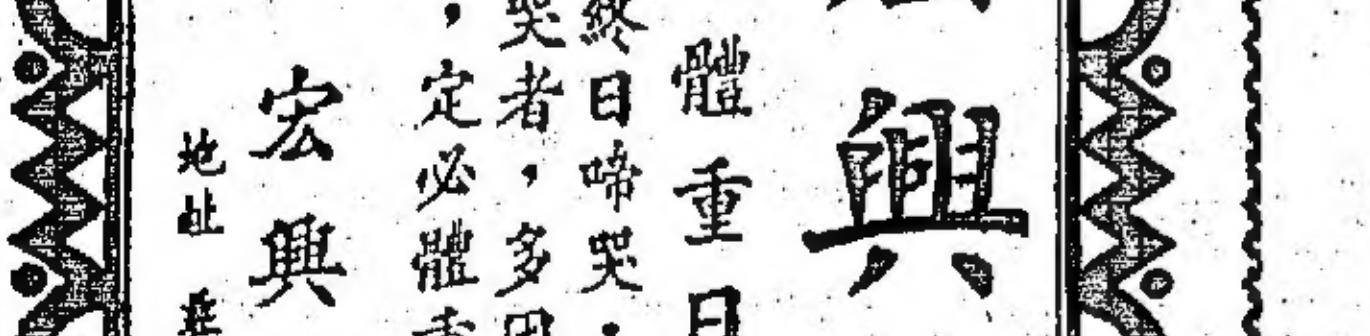 興
體重日
終日啼哭，
哭者，多因
，定必體重
宏興
地址